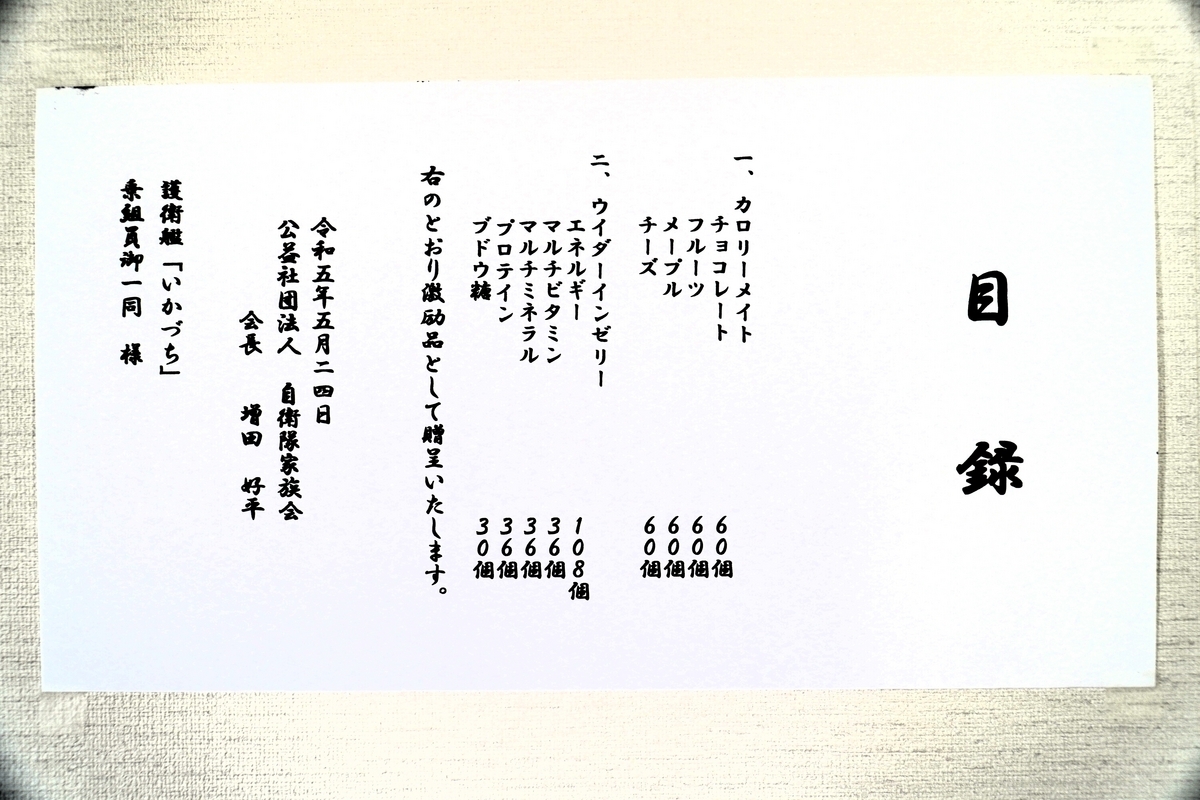 目録
一、カロリーメイト
チョコレート 60個
フルーツ 60個
メープル 60個
チーズ 60個
二、ウイダーインゼリー
エネルギー 108個
マルチビタミン 36個
マルチミネラル 36個
プロテイン 36個
ブドウ糖 30個
右のとおり激励品として贈呈いたします。
令和五年五月二四日
公益社団法人 自衛隊家族会
会長 増田 好平
護衛艦「いかづち」
乗組員御一同 様